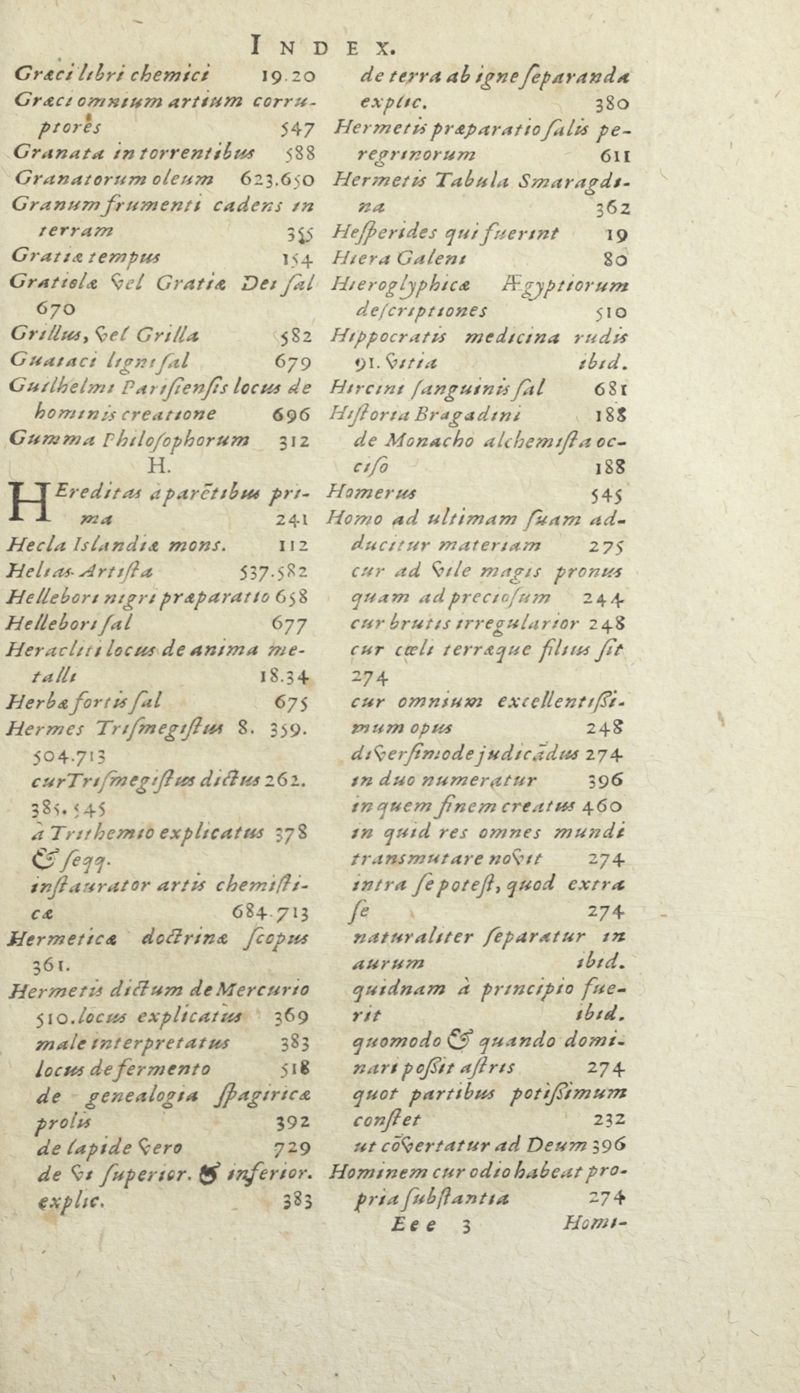 INDEX.
Græci libri chemici 19.20
Græci omnium artium corru-
ptores 547
Granata in torrentibus 588
Granatorum oleum 623.650
Granum frumenti cadens in
terram 355
Gratiæ tempus 154
Gratiolæ vel Gratiæ Dei sal
670
Grillus, vel Grilla 582
Guaiaci ligni sal 679
Guilhelmi Parisiensis locus de
hominis creatione 696
Gumma Philosophorum 312
H.
HEreditas à parētibus pri-
ma 241
Hecla Islandiæ mons. 112
Helias Artista 537.582
Hellebori nigri præparatio 658
Hellebori sal 677
Heracliti locus de anima me-
talli 18.34
Herbæ fortis sal 675
Hermes Trismegistus 8. 359.
504.713
cur Trismegistus dictus 262.
385.545
à Trithemio explicatus 378
& seqq.
instaurator artis chemisti-
cæ 684.713
Hermeticæ doctrinæ scopus
361.
Hermetis dictum de Mercurio
510. locus explicatus 369
male interpretatus 383
locus de fermento 518
de genealogia spagiricæ
prolis 392
de lapide vero 729
de vi superior. & inferior.
explic. 383
de terra ab igne separanda
explic. 380
Hermetis præparatio salis pe-
regrinorum 611
Hermetis Tabula Smaragdi-
na 362
Hesperides qui fuerint 19
Hiera Galeni 80
Hieroglyphicæ Ægyptiorum
descriptiones 510
Hippocratis medicina rudis
91. vitia ibid.
Hircini sanguinis sal 681
Historia Bragadini 188
de Monacho alchemista oc-
ciso 188
Homerus 545
Homo ad ultimam suam ad-
ducitur materiam 275
cur ad vile magis pronus
quam ad preciosum 244
cur brutis irregularior 248
cur cœli terræque filius sit
274
cur omnium excellentissi-
mum opus 248
diversimode judicādus 274
in duo numeratur 396
in quem finem creatus 460
in quid res omnes mundi
transmutare novit 274
intra se potest, quod extra
se 274
naturaliter separatur in
aurum ibid.
quidnam à principio fue-
rit ibid.
quomodo & quando domi-
nari possit astris 274
quot partibus potissimum
constet 232
ut cōvertatur ad Deum 396
Hominem cur odio habeat pro-
pria substantia 274
Eee 3 Homi-